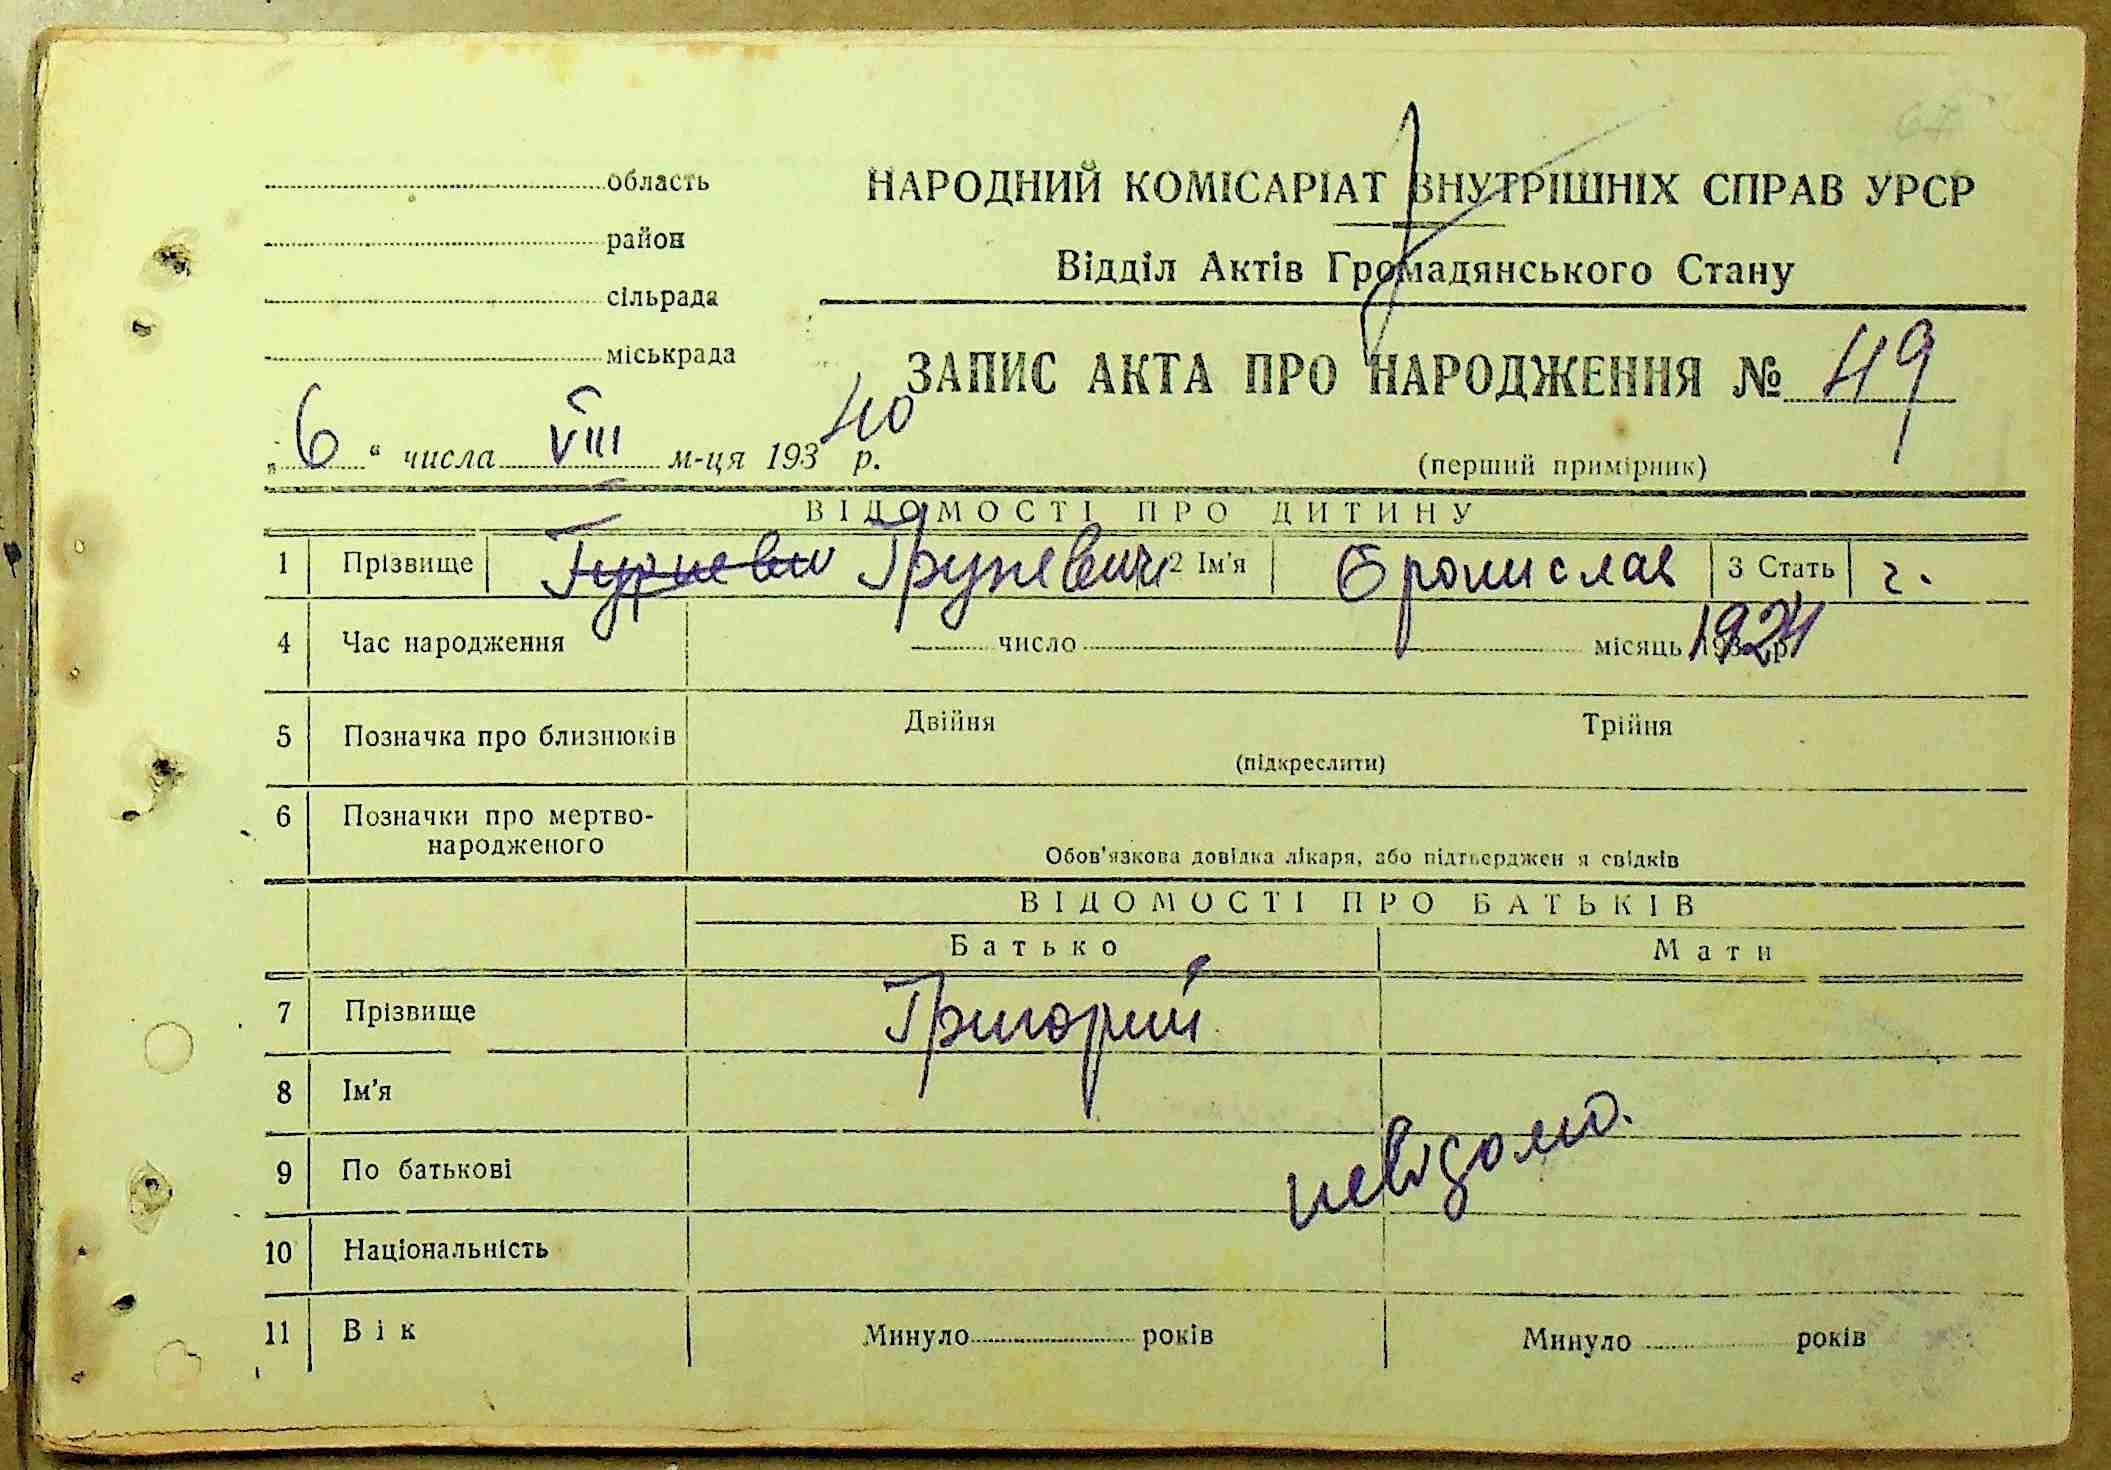 область
район
сільрада
міськрада
НАРОДНИЙ КОМІСАРІАТ ВНУТРІШНІХ СПРАВ УРСР
Відділ Актів Громадянського Стану
ЗАПИС АКТА ПРО НАРОДЖЕННЯ № 49
„6“ числа VIII м-ця 193 40 р.
(перший примірник)
ВІДОМОСТІ ПРО ДИТИНУ
1 Прізвище Грузевич 2 Ім'я Бронислав 3 Стать ч.
4 Час народження число місяць 1924
5 Позначка про близнюків Двійня Трійня
(підкреслити)
6 Позначки про мертво-
народженого
Обов'язкова довідка лікаря, або підтверджен я свідків
ВІДОМОСТІ ПРО БАТЬКІВ
Батько Мати
7 Прізвище Григорий
8 Ім'я
невідомо.
9 По батькові
10 Національність
11 Вік Минуло років Минуло років